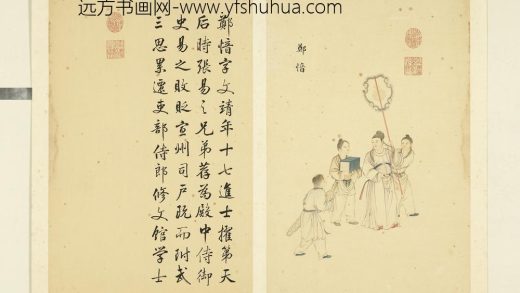 远方书画网-www.yfshuhua.com
鄭愔
鄭愔字文靖年十七進士擢第天
后時張易之兄弟荐為殿中侍御
史易之敗貶宣州司戶既而附武
三思累遷吏部侍郎修文館学士